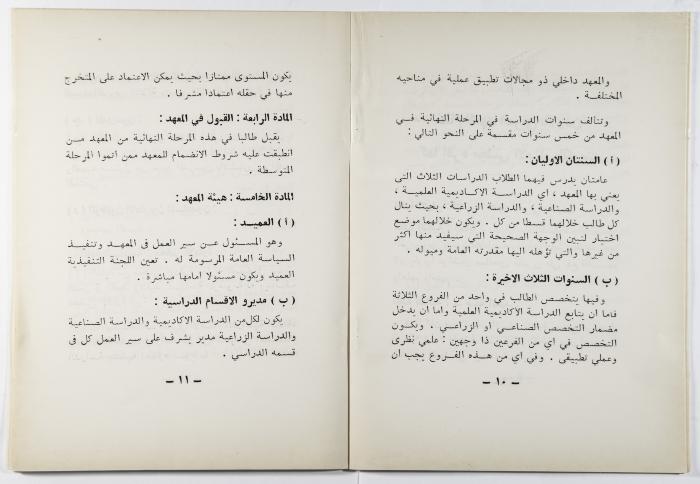 والمعهد داخلي ذو مجالات تطبيق عملية في مناحيه
المختلفة .
وتتألف سنوات الدراسة في المرحلة النهائية في
المعهد من خمس سنوات مقسمة على النحو التالي :
( أ ) السنتان الاوليان :
عامتان يدرس فيهما الطلاب الدراسات الثلاث التى
يعني بها المعهد ، اي الدراسة الاكاديمية العلمية ،
والدراسة الصناعية ، والدراسة الزراعية ، بحيث ينال
كل طالب خلالهما قسطا من كل . ويكون خلالهما موضع
اختبار لتبين الوجهة الصحيحة التي سيفيد منها اكثر
من غيرها والتي تؤهله اليها مقدرته العامة وميوله .
( ب ) السنوات الثلاث الاخيرة :
وفيها يتخصص الطالب في واحد من الفروع الثلاثة
فاما ان يتابع الدراسة الاكاديمية العلمية واما ان يدخل
مضمار التخصص الصناعي او الزراعي . ويكون
التخصص في اي من الفرعين ذا وجهين : علمي نظرى
وعملي تطبيقى . وفي اي من هذه الفروع يجب ان
– ١٠ –
يكون المستوى ممتازا بحيث يمكن الاعتماد على المتخرج
منها في حقله اعتمادا مشرفا .
المادة الرابعة : القبول في المعهد :
يقبل طالبا في هذه المرحلة النهائية من المعهد مــن
انطبقت عليه شروط الانضمام للمعهد ممن اتموا المرحلة
المتوسطة .
المادة الخامسة : هيئة المعهد :
( أ ) العميــد :
وهو المسئول عــن سير العمل فى المعهــد وتنفيــذ
السياسة العامة المرسومة له . تعين اللجنة التنفيذية
العميد ويكون مسئولا امامها مباشرة .
( ب ) مديرو الاقسام الدراسية :
يكون لكل من الدراسة الاكاديمية والدراسة الصناعية
والدراسة الزراعية مدير يشرف على سير العمل كل فى
قسمه الدراسي .
– ١١ –